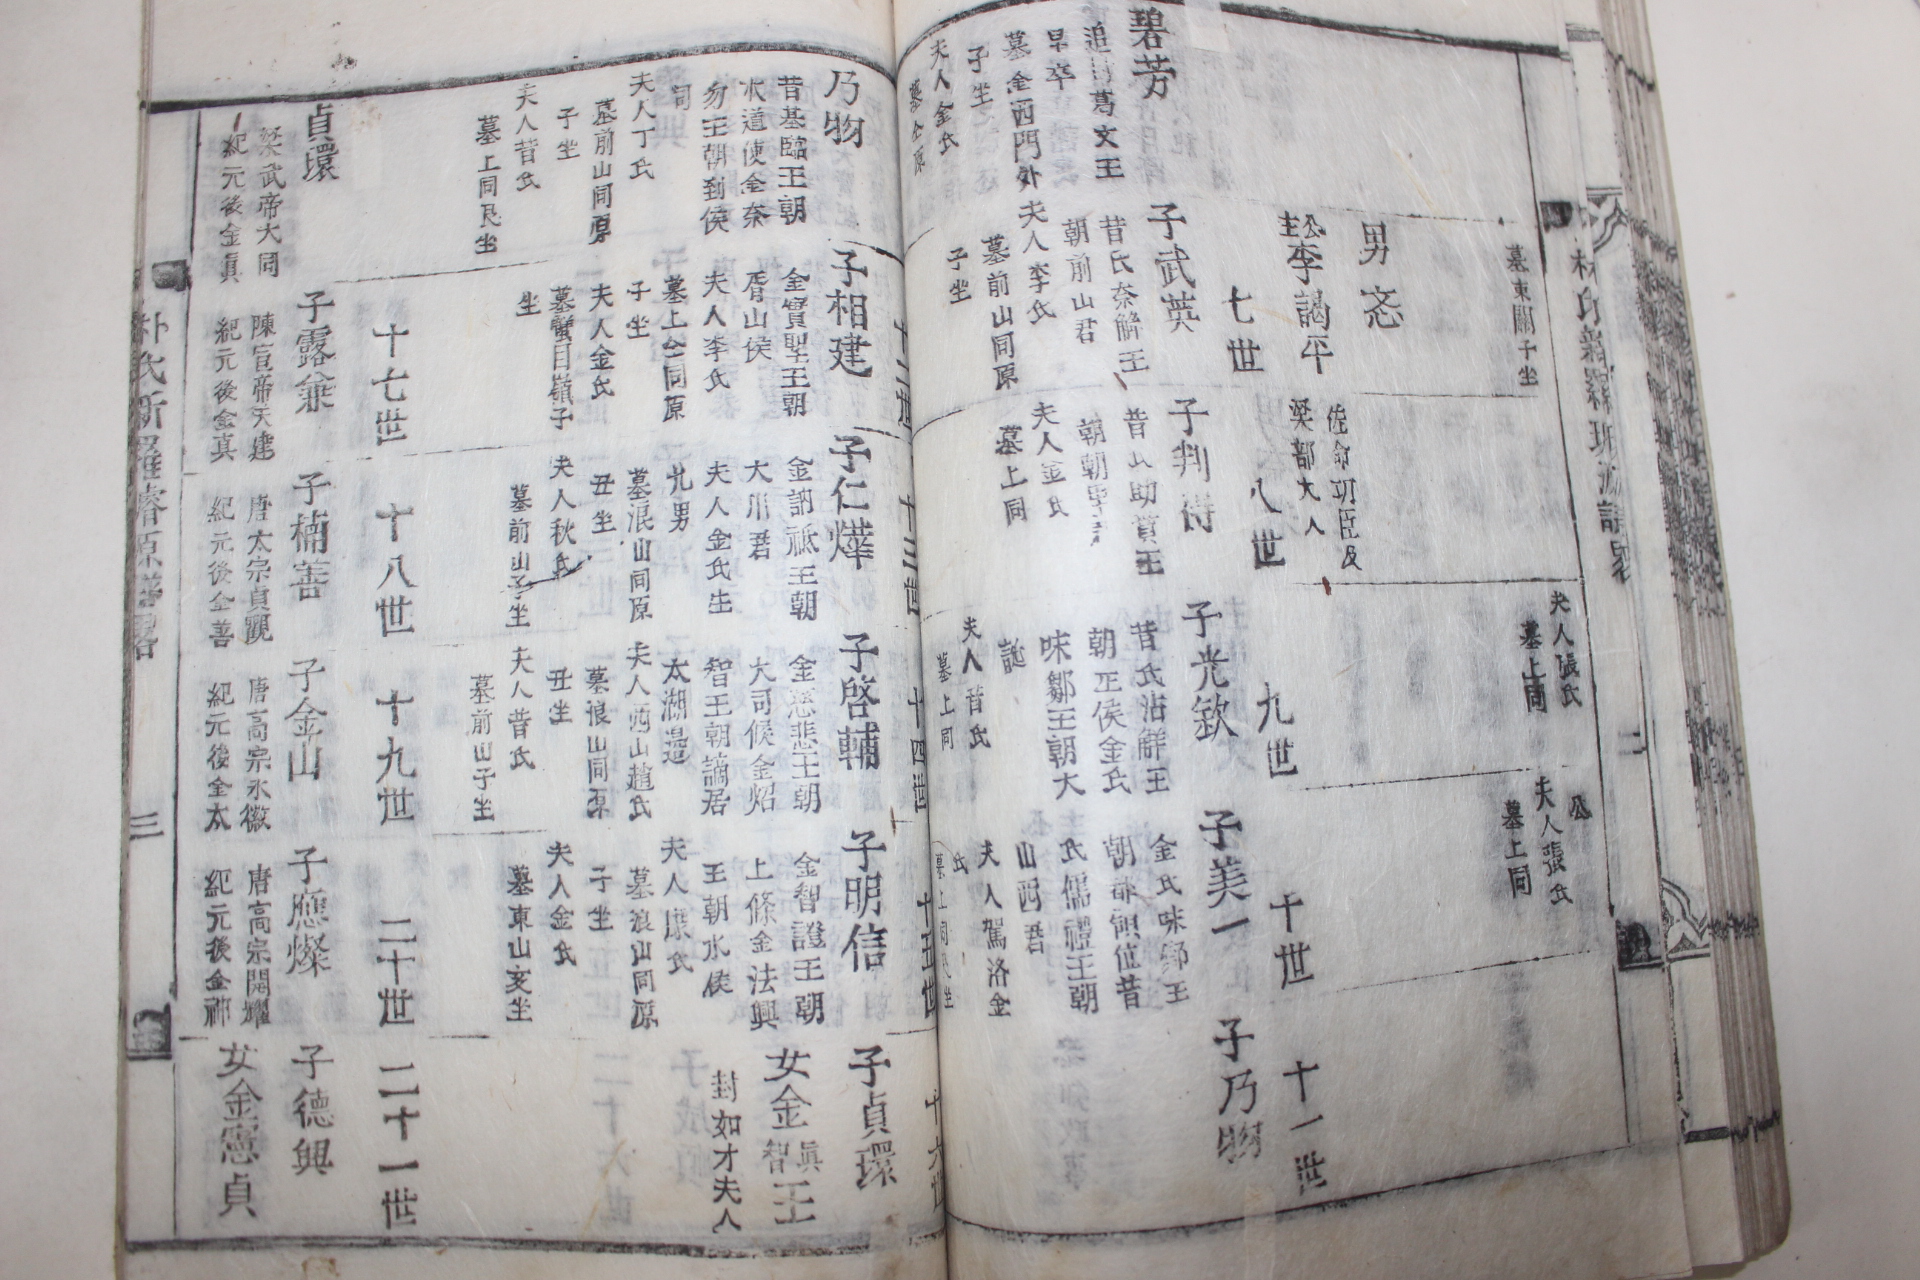 墓東關子坐
夫人張氏
墓上同
公
夫人張氏
墓上同
男忞
公主李謁平
佐命功臣及
梁部大人
七世
八世
九世
十世
十一世
碧芳
追封葛文王
早卒
墓金西門外
子坐
夫人金氏
子武英
昔氏奈解王
朝前山君
夫人李氏
墓前山同原
子坐
子判得
昔氏助賁王
夫人金氏
墓上同
子光欽
昔氏沾解王
朝正侯金氏
味鄒王朝大
夫人昔氏
墓上同
子美一
金氏味鄒王
氏儒禮王朝
山西君
夫人駕洛金
氏
子乃物
十二世
十三世
十四世
十五世
十六世
乃物
昔基臨王朝
水道使金奈
勿王朝到侯
同
夫人丁氏
墓前山同原
子坐
夫人昔氏
墓上同艮坐
子相建
金實聖王朝
屑山侯
夫人李氏
墓上仝同原
子坐
夫人金氏
墓蟹目嶺子
坐
子仁燁
金訥祇王朝
大川君
夫人金氏生
九男
墓浪山同原
丑坐
夫人秋氏
墓前山子坐
子啓輔
金慈悲王朝
大司候金炤
智王朝謫居
太湖邊
夫人西山趙氏
墓浪山同原
丑坐
夫人昔氏
墓前山子坐
子明信
金智證王朝
上條金法興
王朝水侯
夫人康氏
墓浪山同原
子坐
夫人金氏
墓東山亥坐
子貞環
女金眞智王
封如才夫人
十七世
十八世
十九世
二十世
二十一世
貞環
梁武帝大同
紀元後金眞
子露兼
陳宣帝天建
紀元後金真
子楠善
唐太宗貞觀
紀元後金善
子金山
唐高宗永徽
紀元後金太
子應燦
唐高宗開耀
紀元後金神
子德興
女金憲貞
朴氏新羅璿源譜畧
三